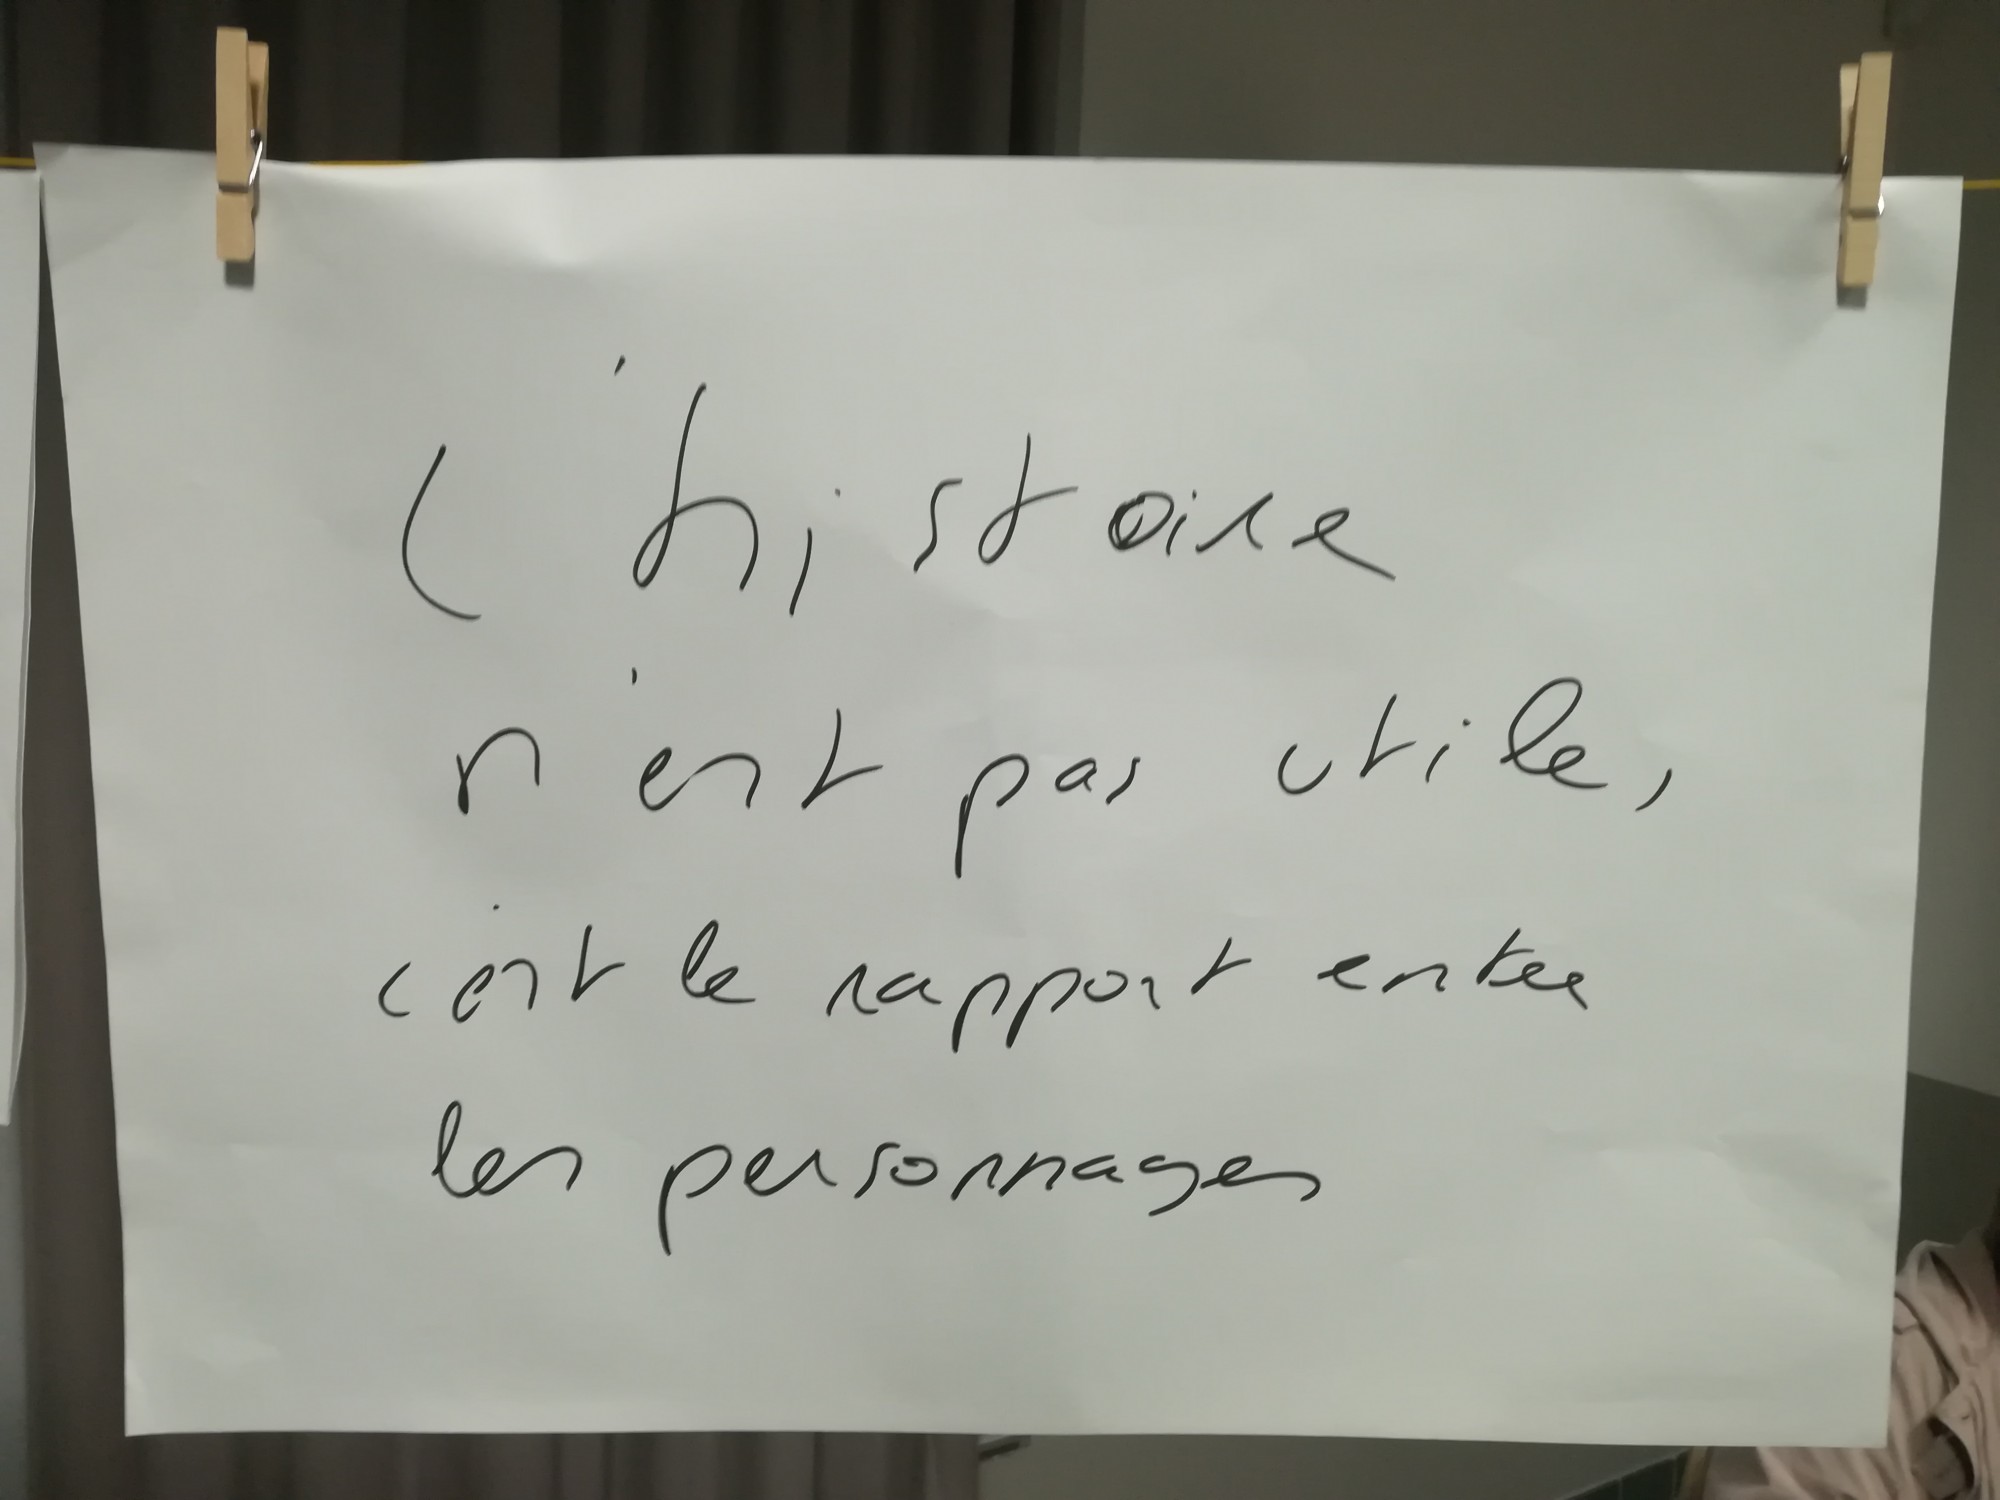 L'histoire
n'est pas utile,
c'est le rapport entre
les personnages